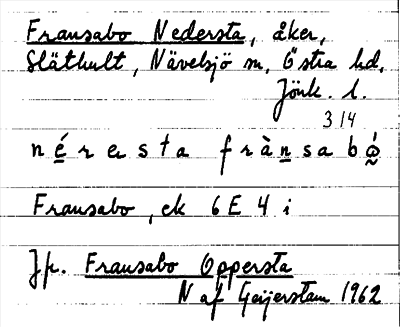 Fransabo Nedersta, åker,
Släthult, Nävelsjö sn, Östra hd,
Jönk. l.
314
néresta frànsabó̰
Fransabo, ek 6E 4 i
Jfr. Fransabo Oppersta
N af Geijerstam 1962